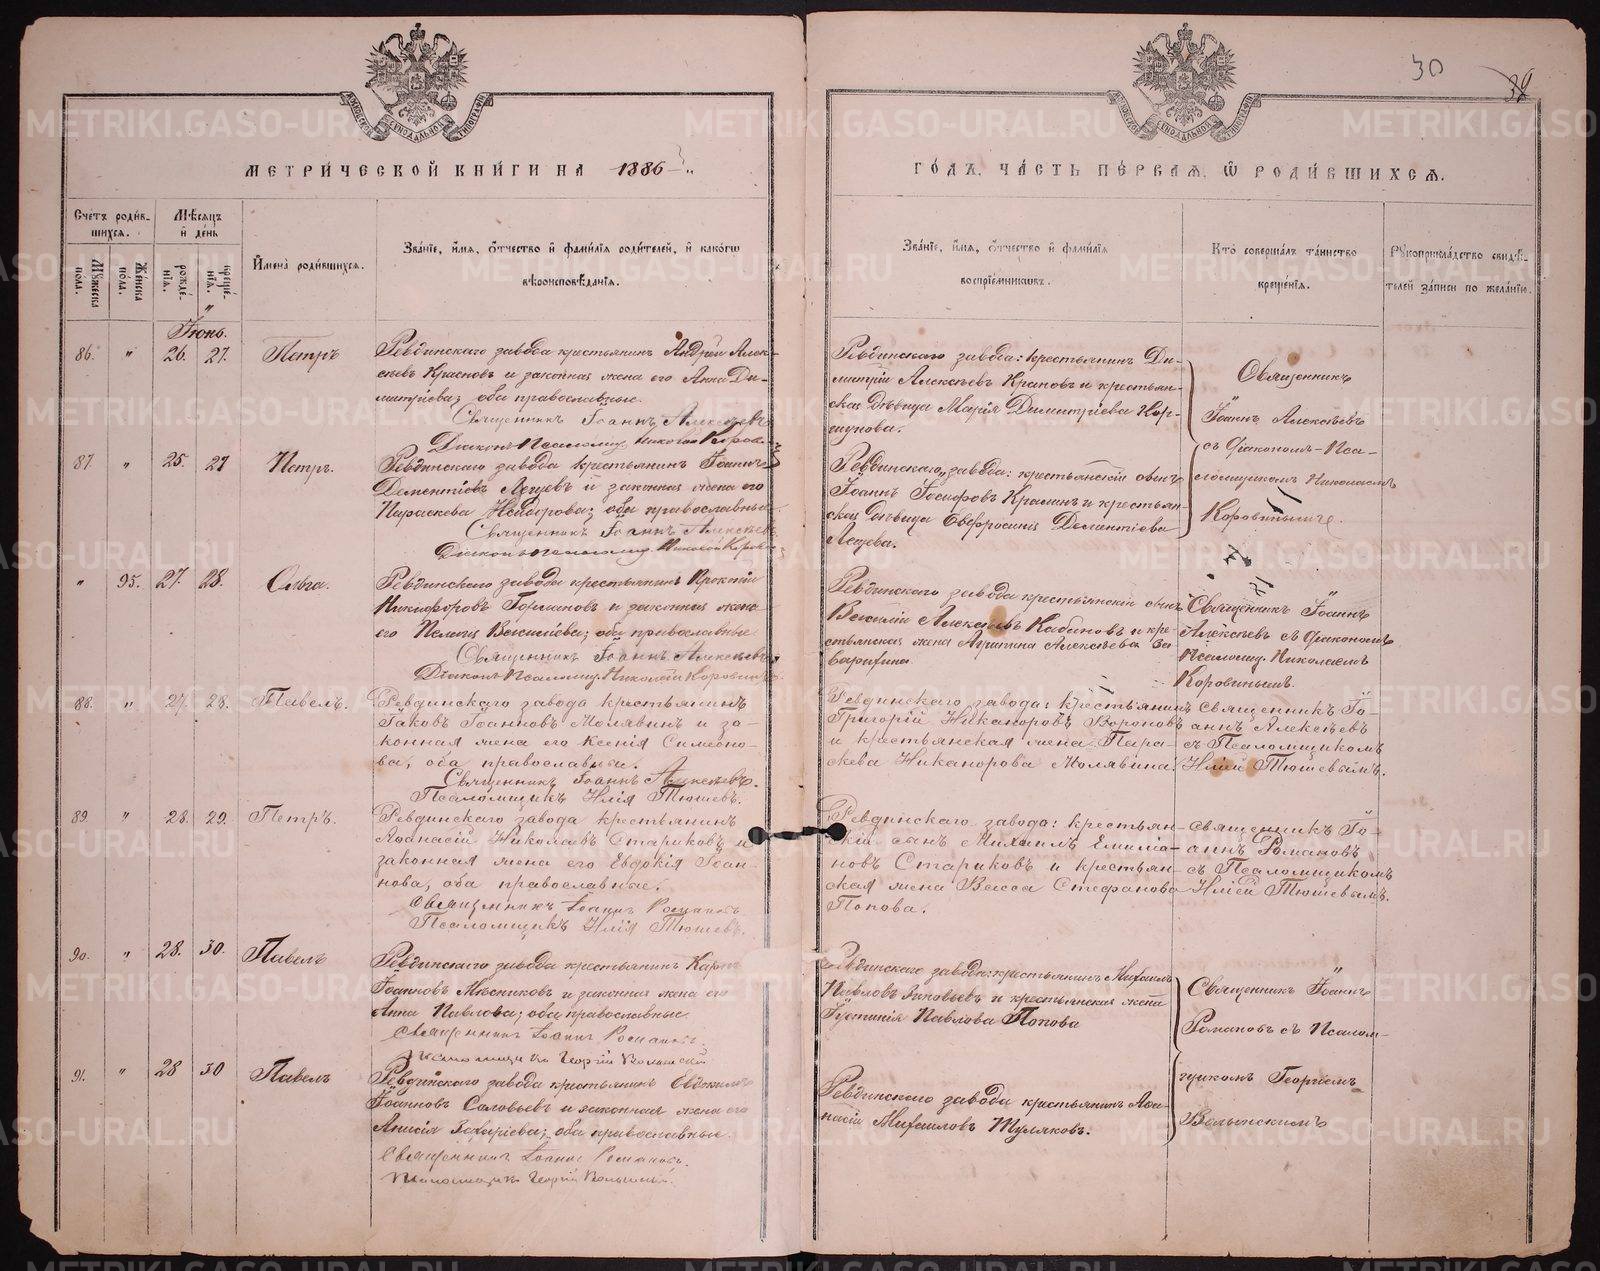 30
39
МЕТРИ́ЧЕСКОЙ КНИ́ГИ НА 1886
ГО́ДЪ, ЧА́СТЬ ПЕ́РВАЯ, Ѿ РОДИ́ВШИХСЯ.
Сче́тъ роди́в-
шихся.
Мꙋжеска пола.
Же́нска по́ла.
Мѣ́сяцъ
и҆ де́нь
рожде́нїя.
креще́нїя.
И҆мена̀ роди́вшихся.
Зва́нїе, и҆́мя, ѻ҆́тчество и҆ фами́лїя роди́телей, и҆ како́гѡ
вѣроисповѣ́данїя.
Зва́нїе, и҆́мя, ѻ҆́тчество и҆ фами́лїя
воспрїе́мникωвъ.
Кто̀ соверша́лъ та́инство
креще́нїя.
Рꙋкоприкла́дство свидѣ́-
телей за́писи по жела́нїю.
Іюнь.
86. " 26. 27. Петръ
Ревдинскаго завода крестьянинъ Андрей Алек-
сѣевъ Красновъ и законная жена его Анна Ди-
митріева; оба православные.
Священникъ Іоаннъ Алексѣевъ
Діаконъ-Псаломщ. Николай Коровин
Ревдинскаго завода: крестьянинъ Ди-
митрій Алексѣевъ Крановъ и крестьян-
ская дѣвица Марія Димитріева Кор-
шунова.
Священникъ
Іоаннъ Алексѣевъ
съ діакономъ-Пса-
ломщикомъ Николаемъ
Коровинымъ.
87. " 25. 27 Петръ.
Ревдинскаго завода крестьянинъ Іоаннъ
Дементіевъ Лещевъ и законная жена его
Параскева; оба православные
Священникъ Іоаннъ Алексѣевъ
Діаконъ-псаломщ. Николай Коровин
Ревдинскаго завода: крестьянскій сынъ
Іоаннъ Іосифовъ и крестьян-
ская дѣвица Евфросинія Дементіева
Лещева.
" 95. 27. 28. Ольга.
Ревдинскаго завода крестьянинъ
Никифоровъ и законная жена
его Васильева; оба православные
Священникъ Іоаннъ Алексѣевъ
Діаконъ-Псаломщ. Николай Коровинъ
Ревдинскаго завода крестьянскій сынъ
Василій Алексѣевъ Кабановъ и кре-
стьянская жена Агрипина Алексѣева
Священникъ Іоаннъ
Алексѣевъ съ діакономъ
Псаломщ. Николаемъ
Коровинымъ.
88. " 27. 28. Павелъ.
Ревдинскаго завода крестьянинъ
Іаковъ Іоанновъ Молявинъ и за-
конная жена его Ксенія Симеоно-
ва, оба православные.
Священникъ Іоаннъ Алексѣевъ.
Псаломщикъ Илія Тюшевъ.
Ревдинскаго завода: крестьянинъ
Григорій Никаноровъ Вороновъ
и крестьянская жена Пара-
скева Никанорова Молявина.
Священникъ Іо-
аннъ Алексѣевъ
съ Псаломщикомъ
Иліей Тюшевымъ.
89. " 28. 29. Петръ.
Ревдинскаго завода крестьянинъ
Аѳанасій Николаевъ Стариковъ и
законная жена его Евдокія Іоан-
нова, оба православные.
Священникъ Іоаннъ Романовъ
Псаломщикъ Илія Тюшевъ.
Ревдинскаго завода: крестьян-
скій сынъ Михаилъ Емилиа-
новъ Стариковъ и крестьян-
ская жена Васса Стефанова
Попова.
Священникъ Іо-
аннъ Романовъ
съ Псаломщикомъ
Иліей Тюшевымъ.
90. " 28. 30. Павелъ
Ревдинскаго завода крестьянинъ Карпъ
Іоанновъ Мѣсниковъ и законная жена его
Анна Павлова; оба православные
Священникъ Іоаннъ Романовъ.
Псаломщикъ Георгій Волынский
Ревдинскаго завода: крестьянинъ Михаилъ
Павловъ Зиновьевъ и крестьянская жена
Іустинія Павлова Попова
Священникъ Іоаннъ
Романовъ съ Псалом-
щикомъ Георгіемъ
Волынскимъ
91. " 28 30 Павелъ
Ревдинскаго завода крестьянинъ Евдокимъ
Іоанновъ Соловьевъ и законная жена его
Анисія Захаріева; оба православные.
Священникъ Іоаннъ Романовъ.
Псаломщикъ Георгій Волынскій.
Ревдинскаго завода крестьянинъ Аѳа-
насій Михаиловъ Туляковъ.
METRIKI.GASO-URAL.RU